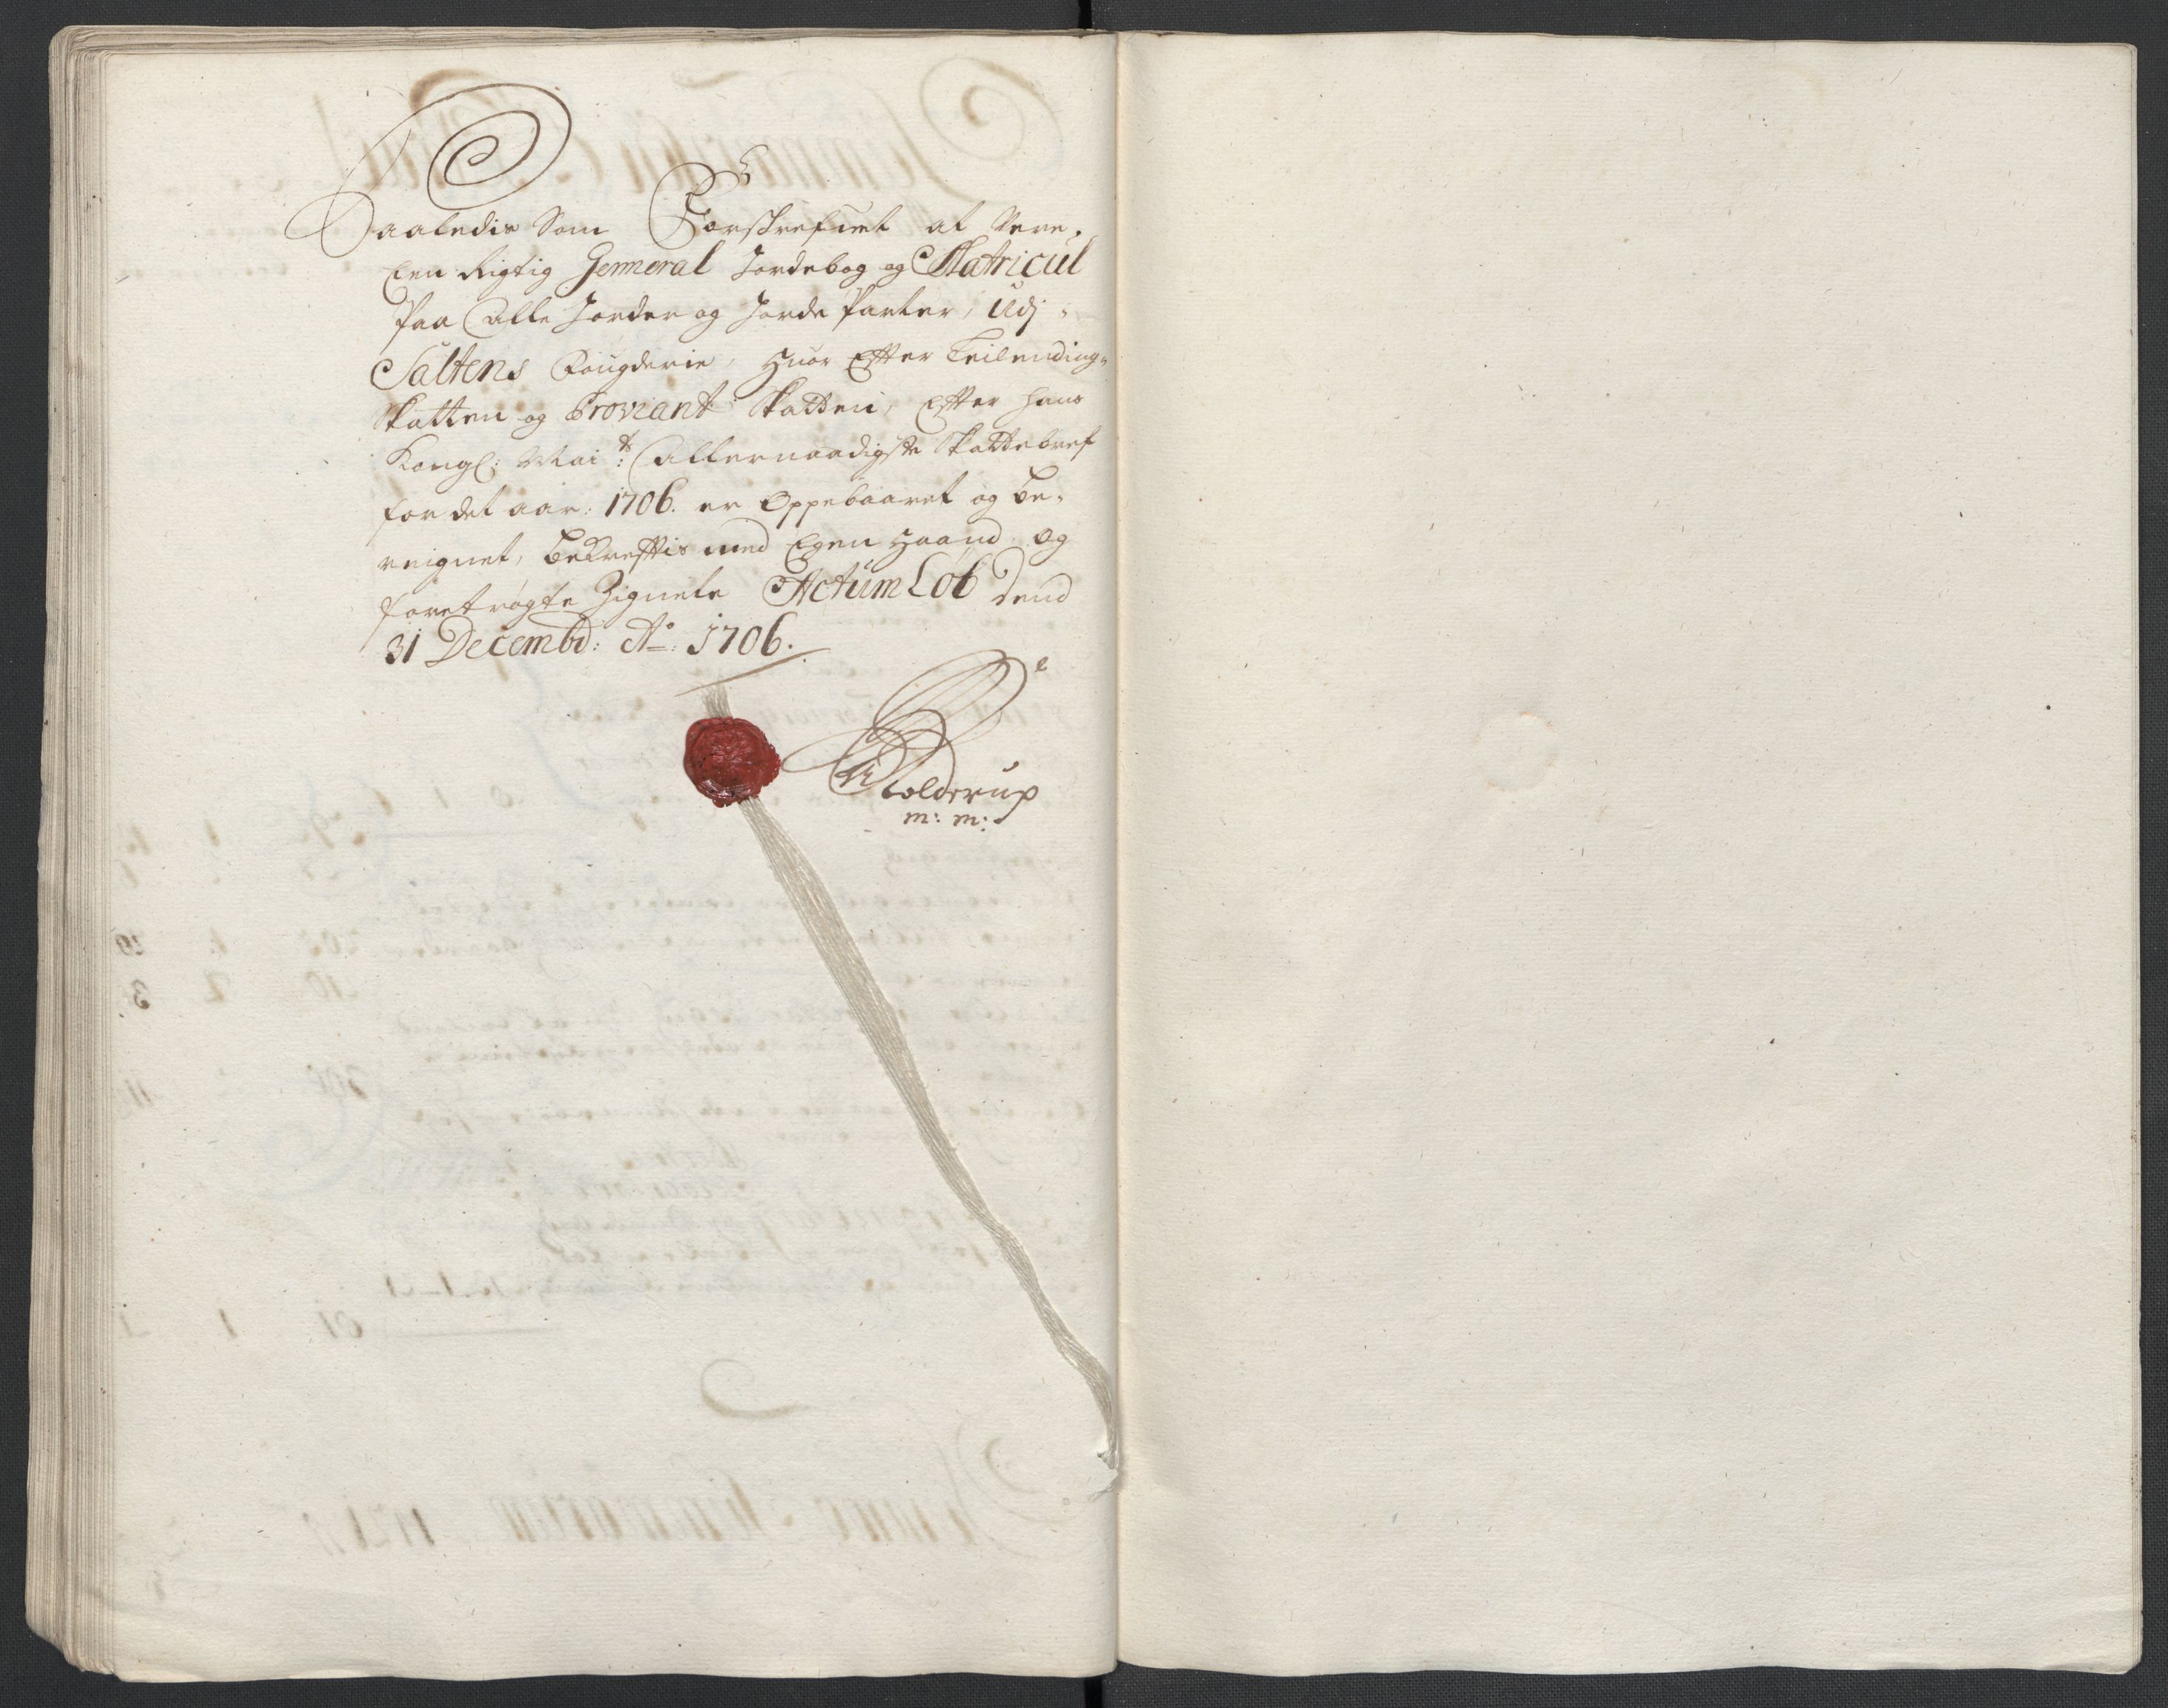 Saaledis Som Forskrefuet at Vere.
Een Rigtig Jenneral Jordebog og Matricul
Paa Alle Jorder og Jorde Parter, Udj
Saltens Fougderie, Huor Efter Leilending-
skatten og Proviant skatten, Efter Hans
Kongl: Mai:t Allernaadigste Skattebref
for det aar: 1706. er Oppebaaret og be-
reignet, bekreftis med Egen Haand og
foretrøgte Zignete Actum Løb dend
31 Decembr: Ao: 1706.
Tolderup
m: m: